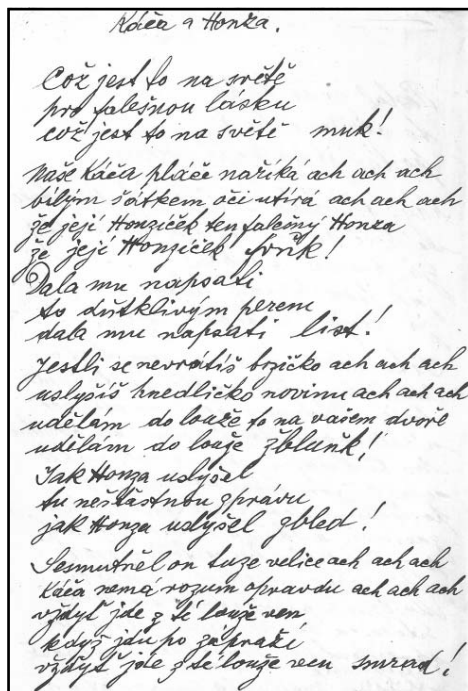 Káča a Honza.
Což jest to na světě
pro falešnou lásku
což jest to na světě muk!
Naše Káča pláče naříká ach ach ach
bílým šátkem oči utírá ach ach ach
že její Honzíček ten falešný Honza
že její Honzíček frnk!
Dala mu napsati
to důtklivým perem
dala mu napsati list!
Jestli se nevrátíš brzičko ach ach ach
uslyšíš hnedličko novinu ach ach ach
udělám do louže to na vašem dvoře
udělám do louže žbluňk!
Jak Honza uslyšel
tu nešťastnou zprávu
jak Honza uslyšel zbled!
Sesmutněl on tuze velice ach ach ach
Káča nemá rozum opravdu ach ach ach
vždyť jde z té louže ven
když jdu po zápraží
vždyť jde z té louže ven smrad!